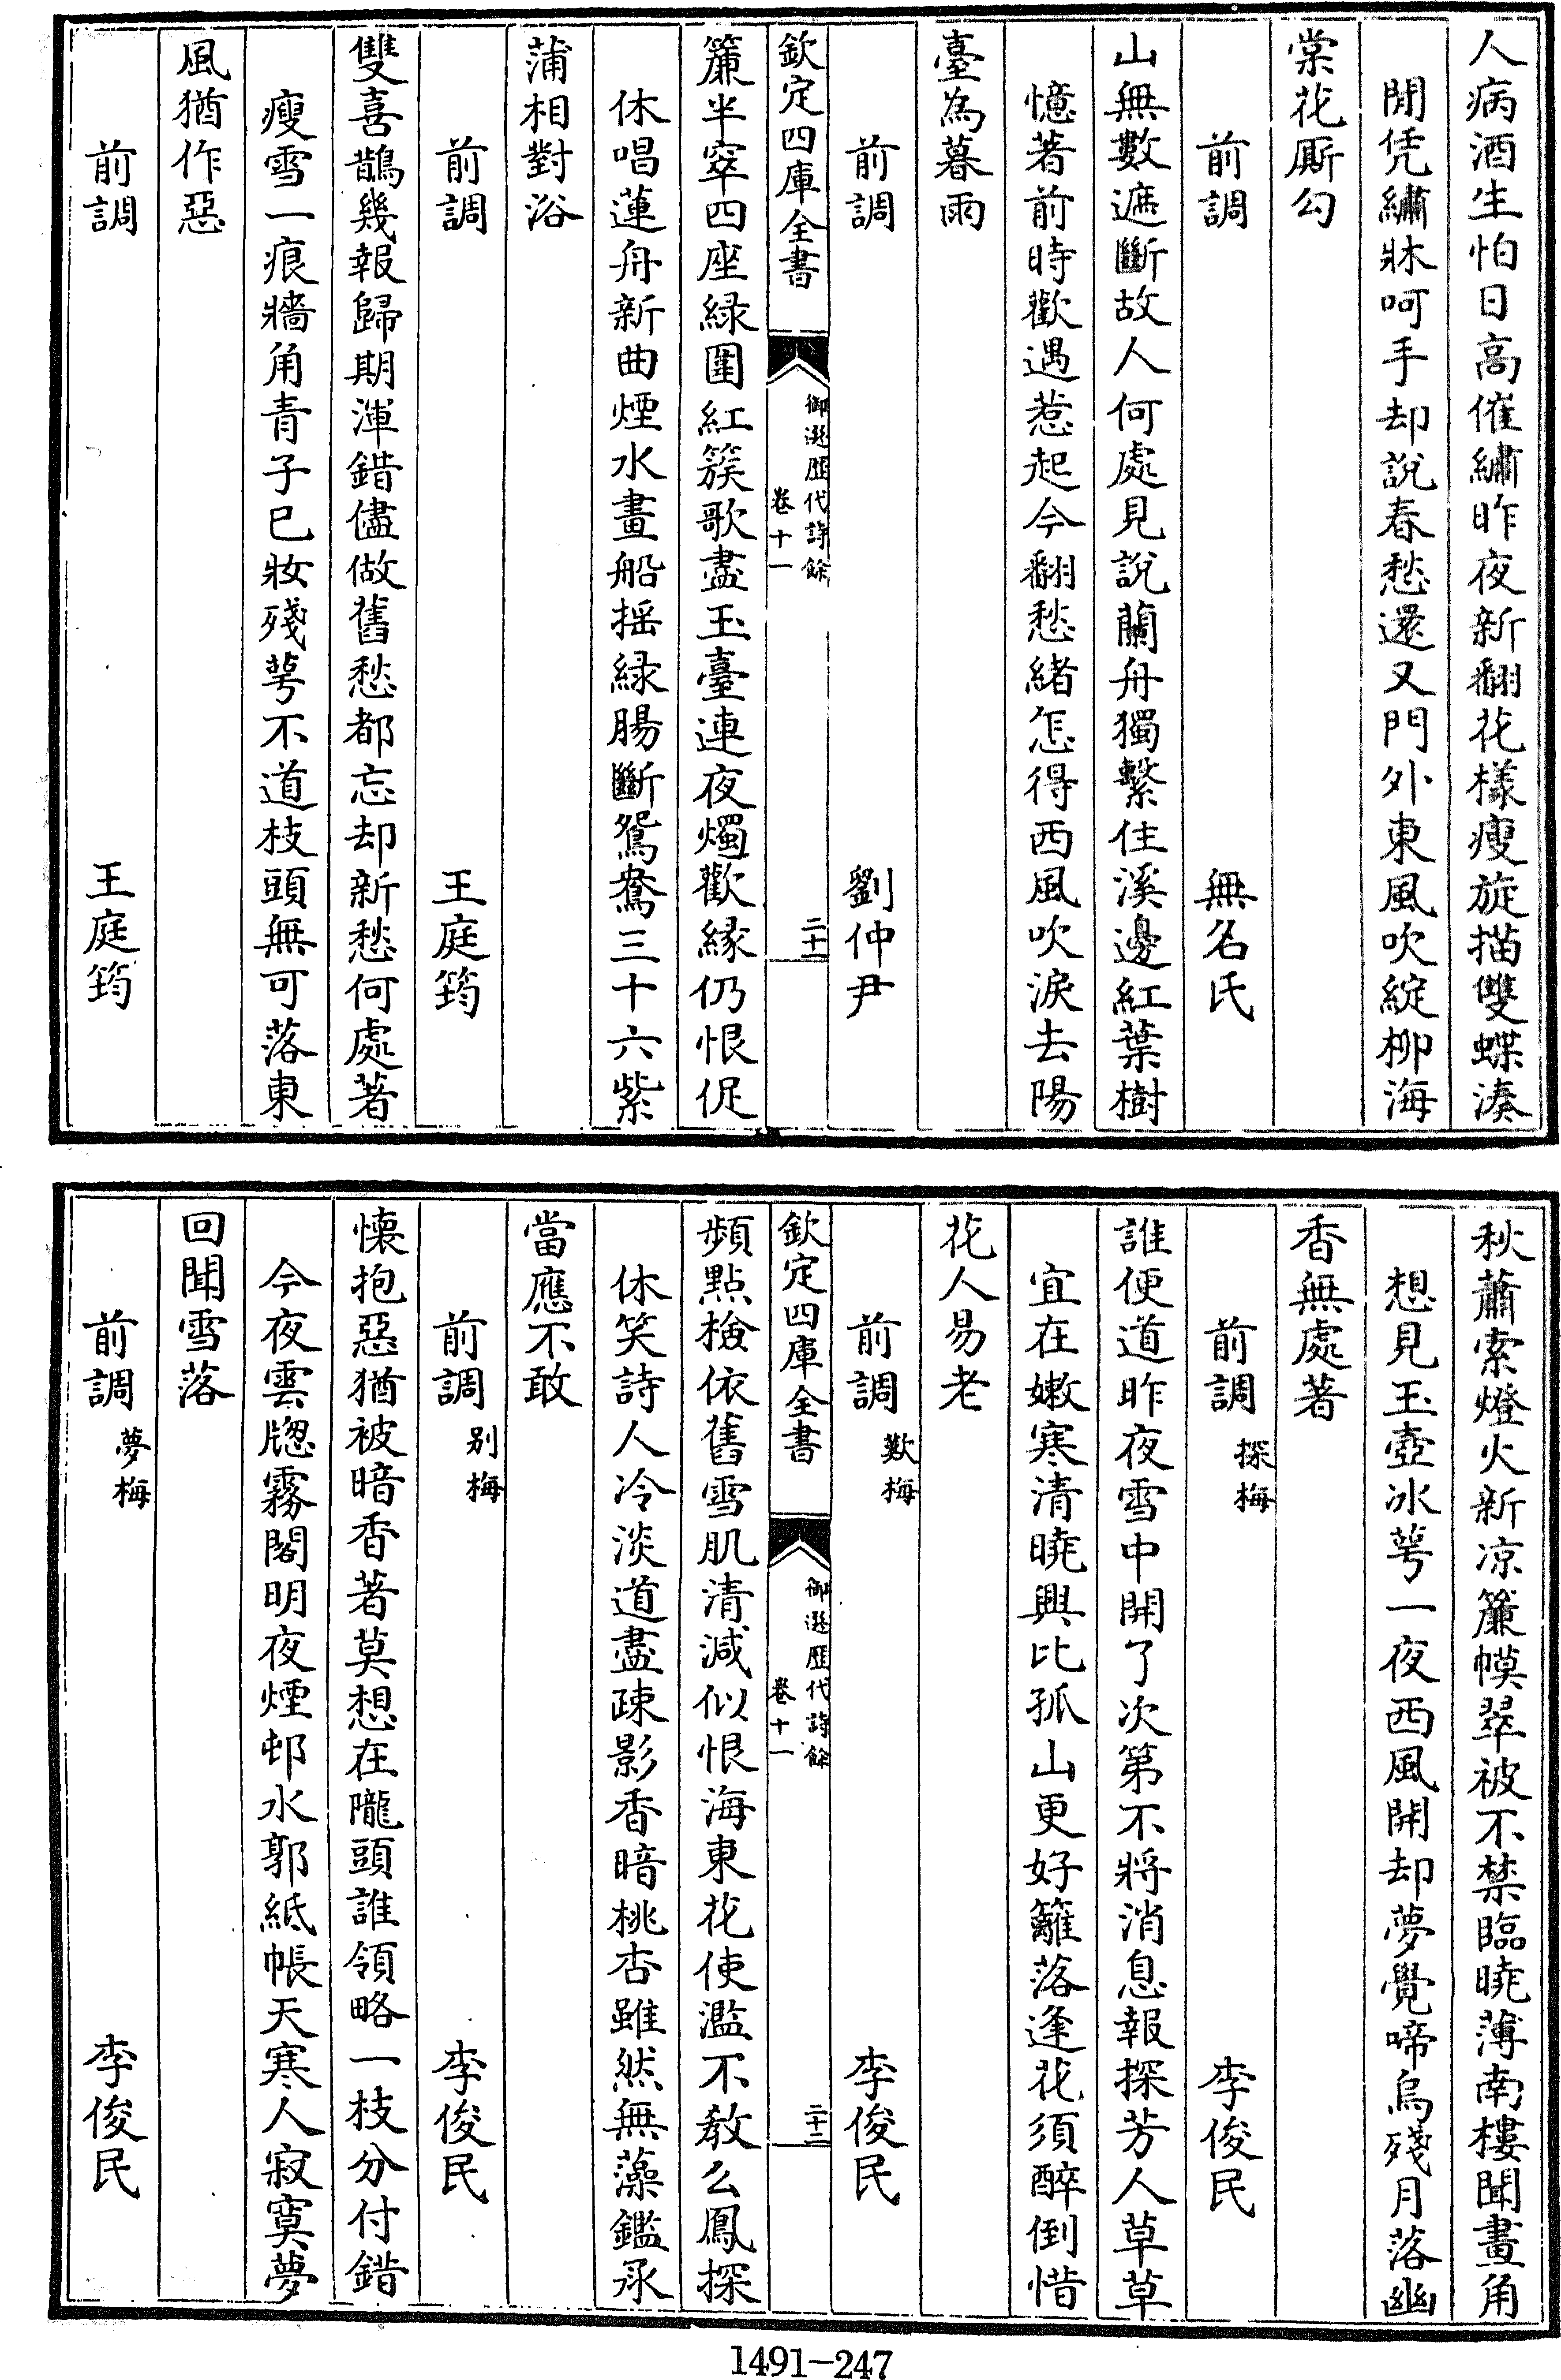 人病酒生怕日高催繡昨夜新翻花樣瘦旋描雙蝶湊
閒凭繡牀呵手却說春愁還又門外東風吹綻柳海
棠花厮勾
前調 無名氏
山無數遮斷故人何處見說蘭舟獨繫住溪邊紅葉樹
憶著前時歡遇惹起今翻愁緒怎得西風吹淚去陽
臺為暮雨
前調 劉仲尹
欽定四庫全書 御選歷代詩餘 卷十一 二十一
簾半窣四座綠圍紅簇歌盡玉臺連夜燭歡緣仍恨促
休唱蓮舟新曲煙水畫船揺綠腸斷鴛鴦三十六紫
蒲相對浴
前調 王庭筠
雙喜鵲幾報歸期渾錯儘做舊愁都忘却新愁何處著
瘦雪一痕牆角青子已妝殘萼不道枝頭無可落東
風猶作惡
前調 王庭筠
秋蕭索燈火新凉簾幙翠被不禁臨曉薄南樓聞畫角
想見玉壺冰萼一夜西風開却夢覺啼烏殘月落幽
香無處著
前調 探梅 李俊民
誰便道昨夜雪中開了次第不將消息報探芳人草草
宜在嫩寒清曉興比孤山更好籬落逢花須醉倒惜
花人易老
前調 歎梅 李俊民
欽定四庫全書 御選歷代詩餘 卷十一 二十二
頻點檢依舊雪肌清減似恨海東花使濫不教么鳳探
休笑詩人冷淡道盡疎影香暗桃杏雖然無藻鑑承
當應不敢
前調 别梅 李俊民
懷抱惡猶被暗香著莫想在隴頭誰領略一枝分付錯
今夜雲牕霧閣明夜煙邨水郭紙帳天寒人寂寞夢
回聞雪落
前調 夢梅 李俊民
1491-247